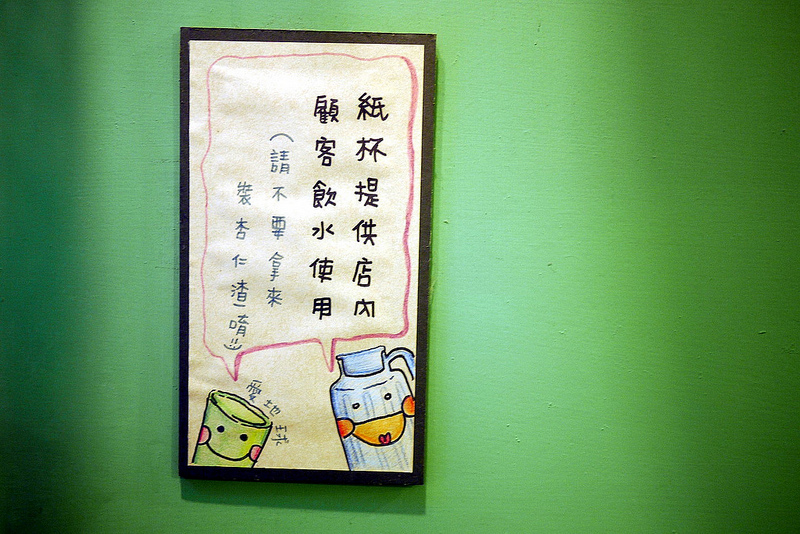 紙杯提供店內
顧客飲水使用
（請不要拿來
裝杏仁渣唷
愛地球